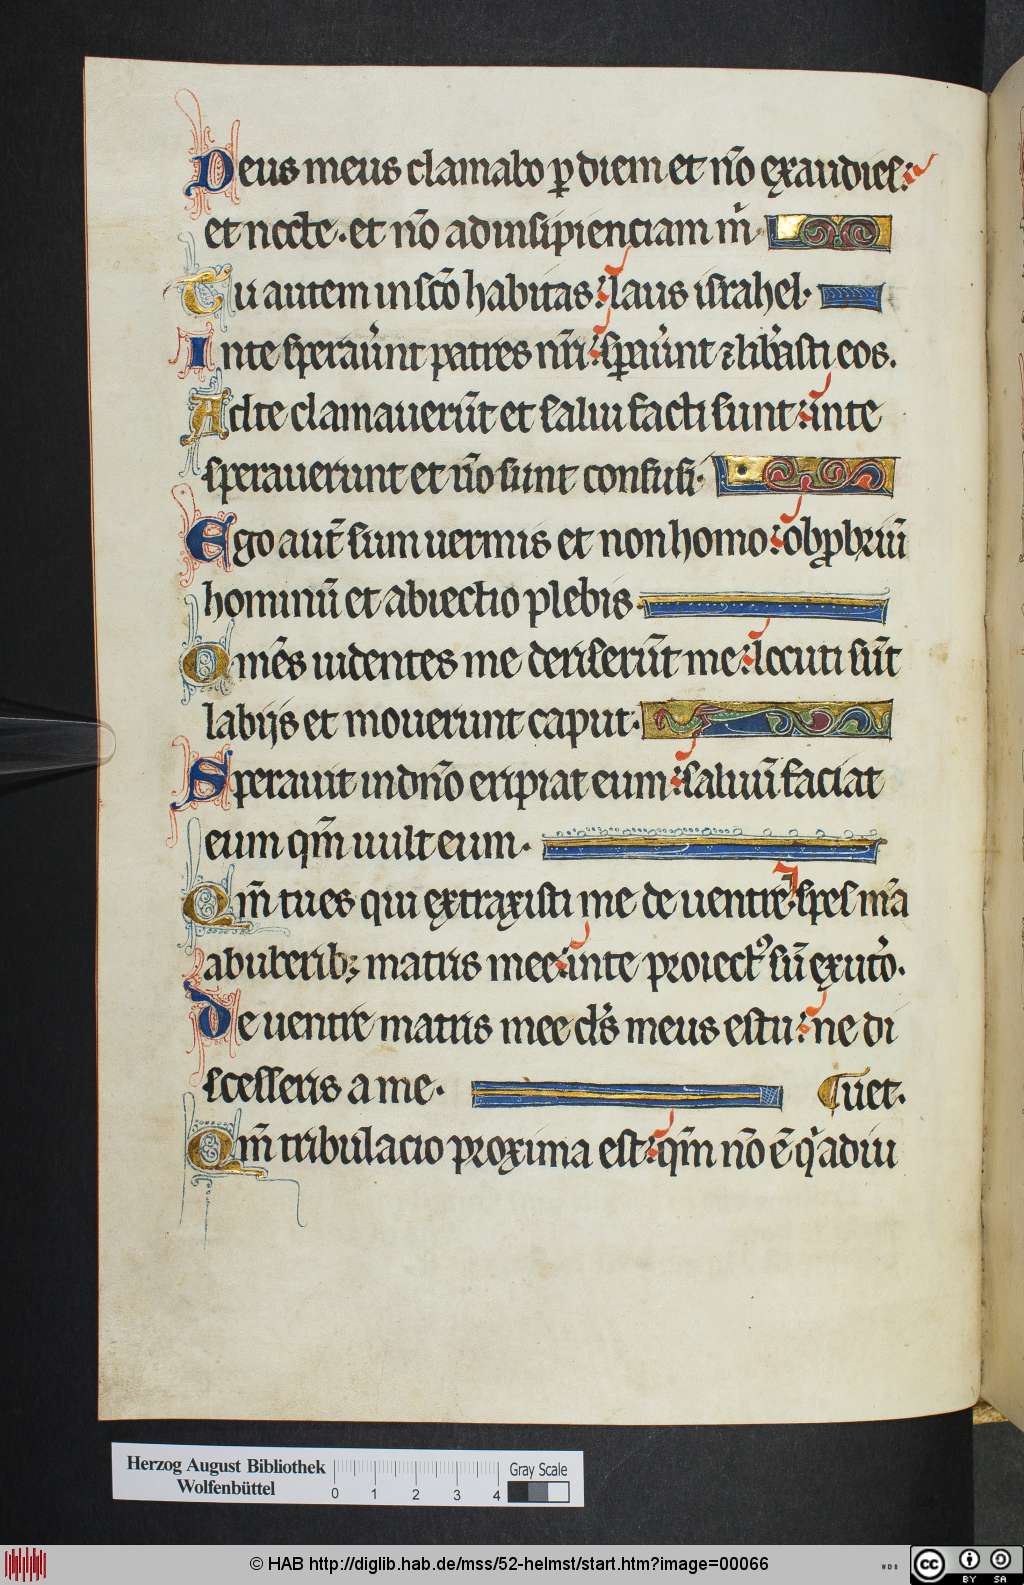 Deus meus clamabo ꝑ diem et nō exaudies:
et nocte. et nō ad insipienciam m̄
Tu autem in sc̄o habitas: laus israhel.
In te speraůnt patres nr̄i: sꝑaůnt ⁊ lib̄asti eos.
Ad te clamauerūt et salui facti sunt: in te
sperauerunt et nō sunt confusi.
Ego aut̄ sum uermis et non homo: obꝓbriū
hominū et abiectio plebis.
Om̄es uidentes me deriserūt me: locuti sūt
labijs et mouerunt caput.
Sperauit in dn̄o eripiat eum: saluū faciat
eum qm̄ uult eum.
Qm̄ tu es qui extraxisti me de uentre: spes m̄a
ab uberibꝫ matris mee: in te proiectꝰ sū ex uto.
De uentre matris mee ds̄ meus es tu: ne di
scesseris a me. uet.
Qm̄ tribulacio proxima est: qm̄ nō ē q̇ adiu
Herzog August Bibliothek
Wolfenbüttel
0 1 2 3 4
Gray Scale
© HAB http://diglib.hab.de/mss/52-helmst/start.htm?image=00066
WDB
cc BY SA